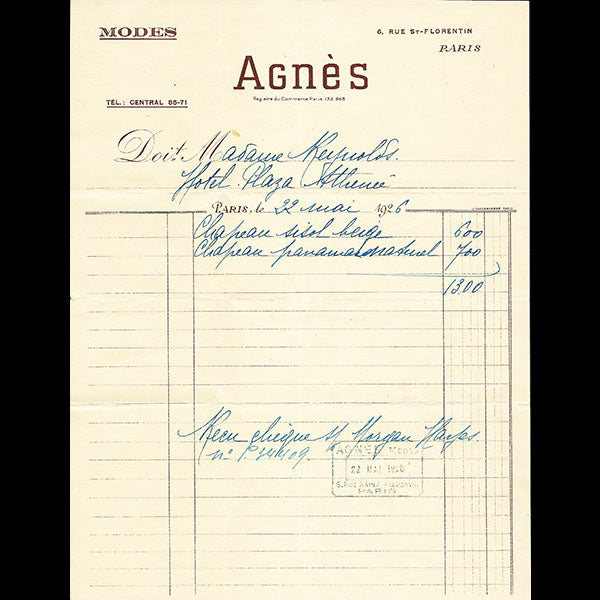 MODES
6, RUE ST-FLORENTIN
PARIS
Agnès
Registre du Commerce Paris 133.868
TÉL.: CENTRAL 85-71
Doit Madame Reynolds.
Hotel Plaza Athénée
PARIS, le 22 mai 1926
Chapeau sisol beige 600
Chapeau panama naturel 700
1300
Recu chèque s/ Morgan Harjes.
n°
AGNÈS MODES
22 MAI 1926
6, RUE SAINT FLORENTIN
PARIS